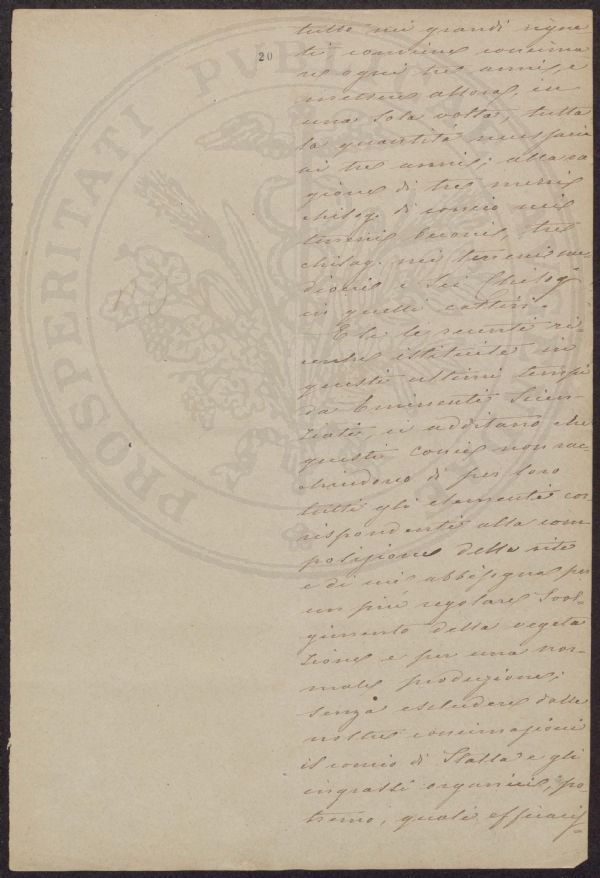 20
tutto nei grandi vigne
ti conviene concima
re ogni tre anni, e
mettere allora, in
una sola volta, tutta
la quantità necessaria
ai tre anni; alla ra
gione di tre mezzi
chilog. di concio nei
terreni buoni, tre
chilog. nei terreni me
diocri e sei Chilog.
in quelli cattivi.
E le recenti ri-
cerche istituite in
questi ultimi tempi
da Eminenti Scien
ziati, ci additano che
questi conci non rac
chiudono di per loro
tutti gli elementi cor
rispondenti alla com
posizione della vite
e di cui abbisogna per
un più regolare svol-
gimento della vegeta
zione e per una nor-
male produzione;
senza escludere dalle
nostre concimazioni
il concio di Stalla e gli
ingrassi organici, po-
tremo, quali efficacis-
PROSPERITATI PVBLICAE